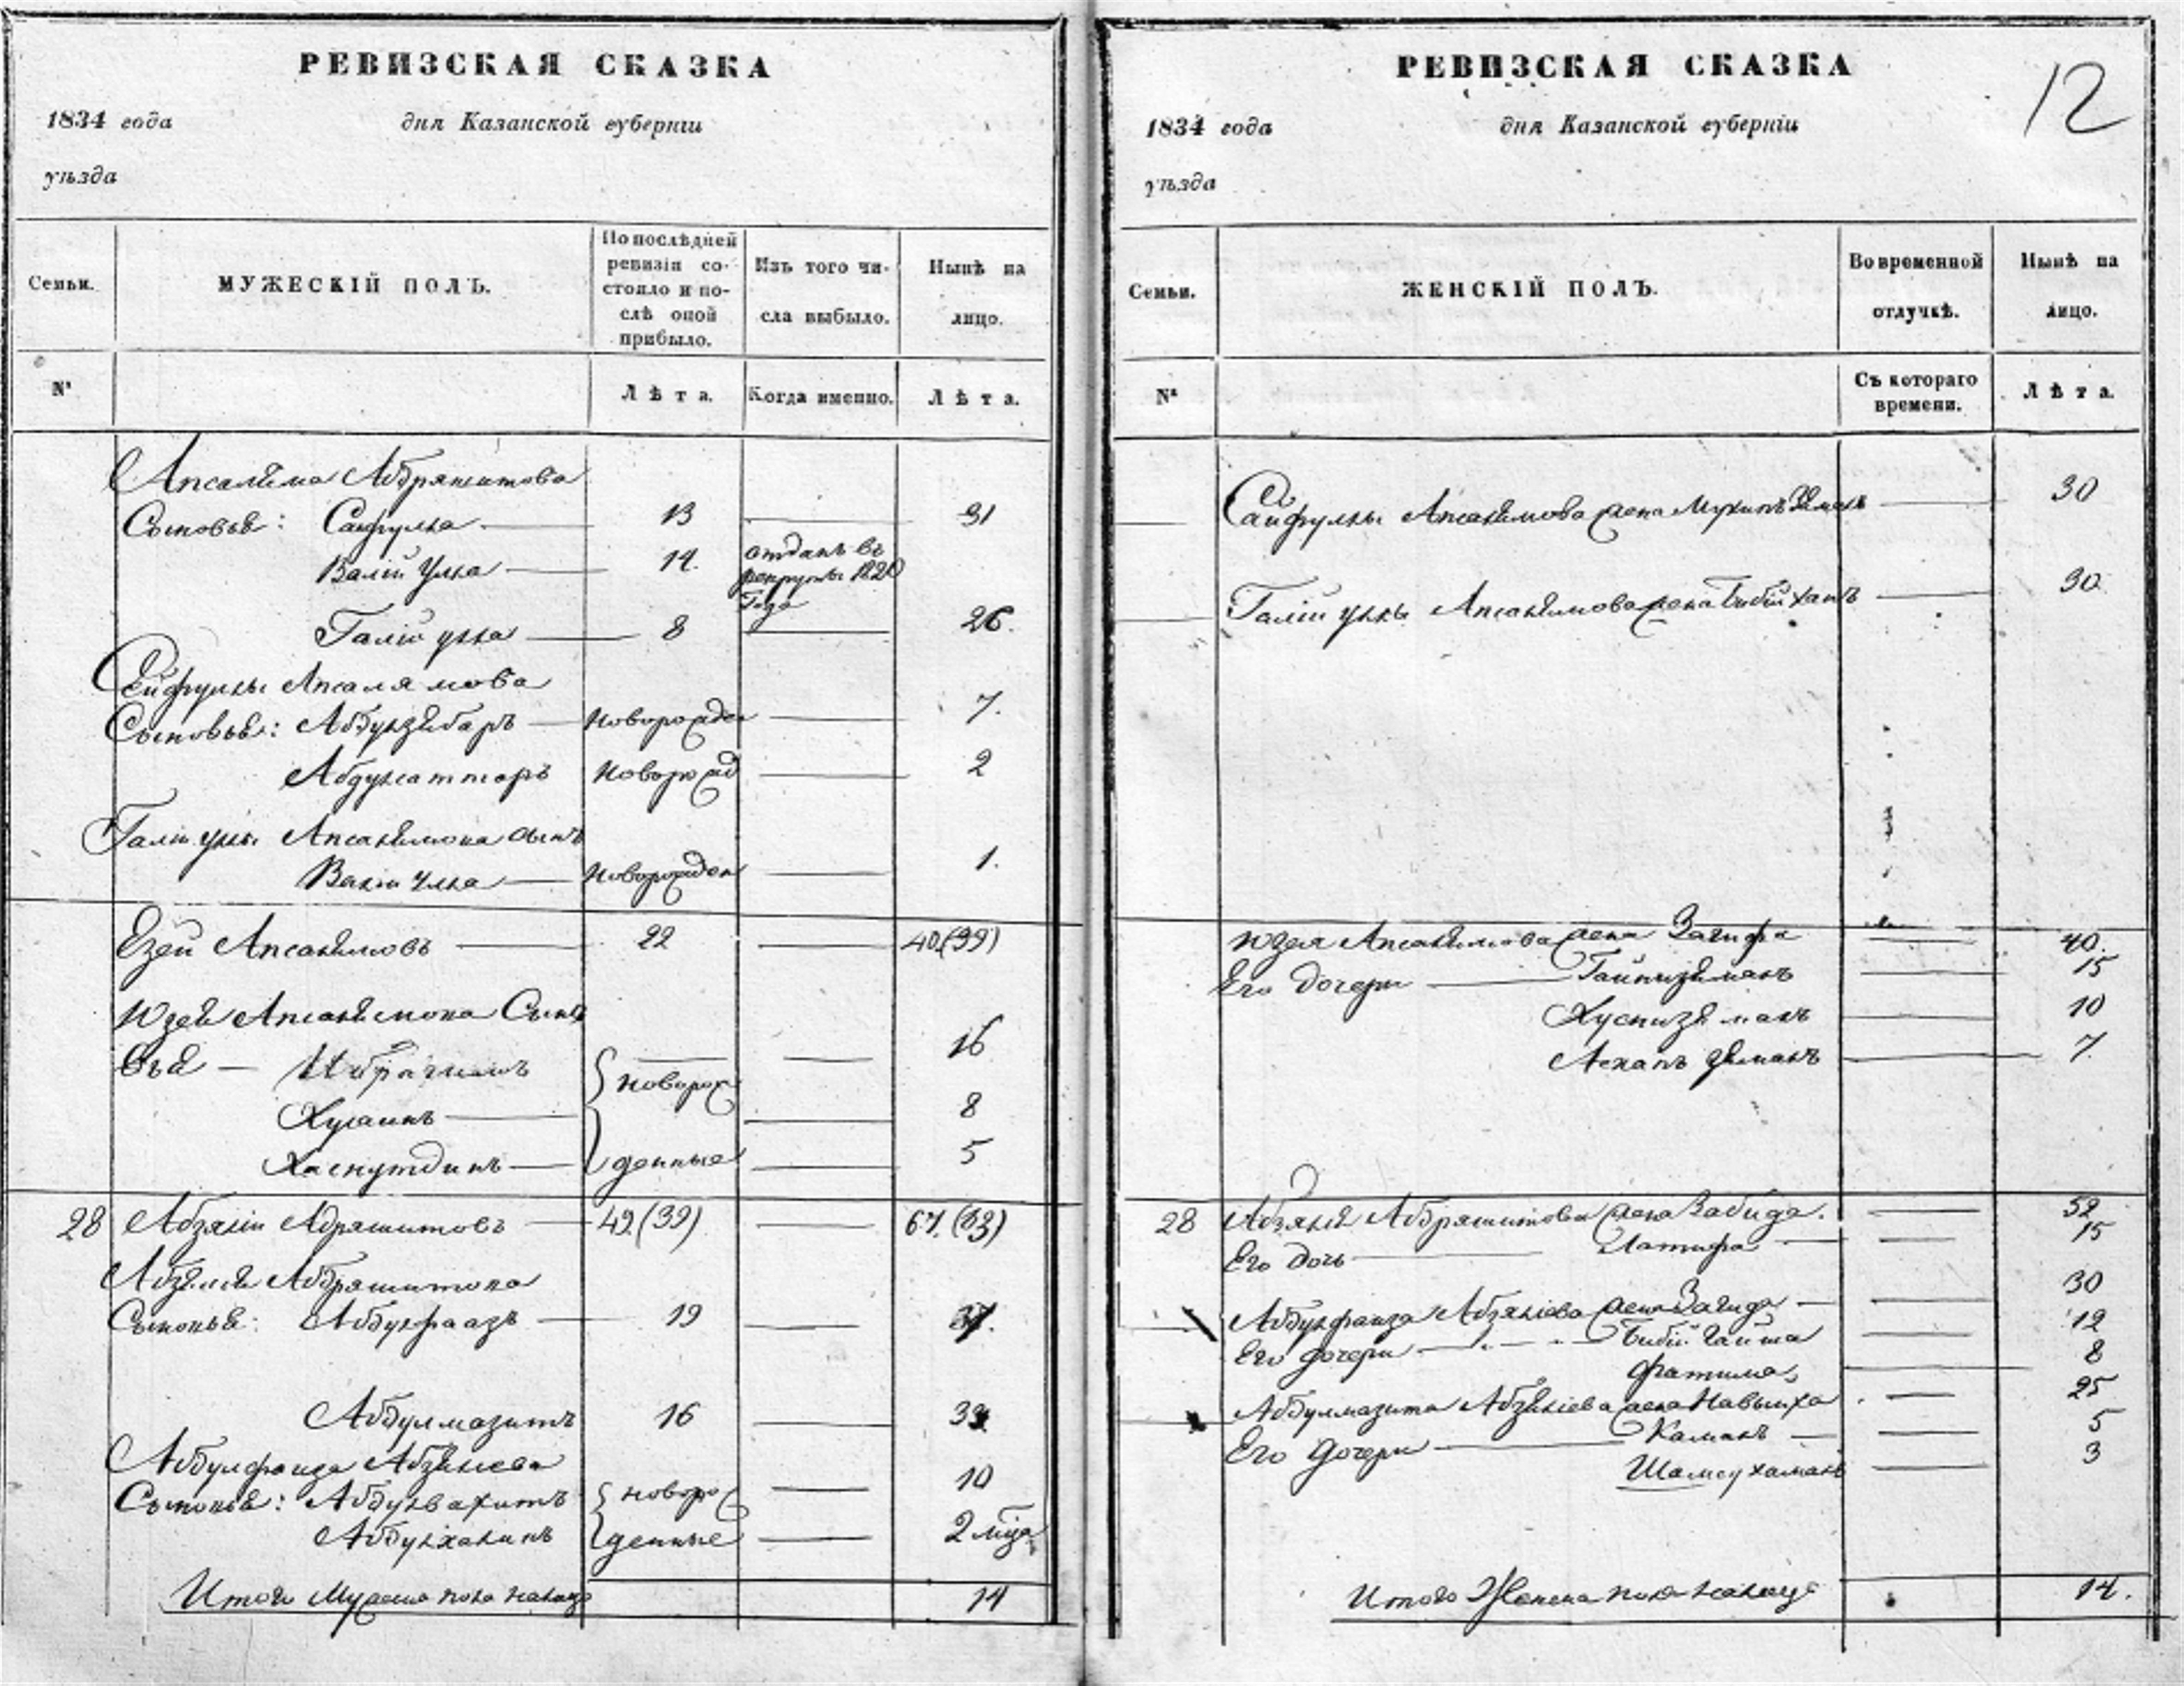 РЕВИЗСКАЯ СКАЗКА
1834 года дня Казанской губерніи
уѣзда
Семьи. МУЖЕСКІЙ ПОЛЪ. По послѣдней ревизіи состояло и послѣ оной прибыло. Изъ того числа выбыло. Нынѣ на лицо.
№ Лѣта. Когда именно. Лѣта.
Апсаляма Абдряшитова
Сыновья: Сайфулла 13 31
Валіи Улла 14. отданъ въ рекруты 1820 года
Галіи улла 8 26.
Сейфуллы Апсалямова
Сыновья: Абдулзябаръ новорожден 7.
Абдулсатторъ новорожд 2
Галіи уллы Апсалямова сынъ
Валіи Улла новорожден 1.
Езеи Апсалямовъ 22 40.(39)
Юзея Апсалямова Сыно
вья — Ибрагимъ новорож 16
Хусаинъ 8
Хаснутдинъ денные 5
28 Абзяліи Абряшитовъ 49.(39) 67.(63)
Абзяліея Абдряшитова
Сыновья: Абдулфаазъ 19 37.
Абдулмазитъ 16 33
Абдулфаиза Абзяліева
Сыновья: Абдулвахитъ новоро 10
Абдулхаликъ жденные 2 мца
Итого Мужеска пола налицо 14
РЕВИЗСКАЯ СКАЗКА
12
1834 года дня Казанской губерніи
уѣзда
Семьи. ЖЕНСКІЙ ПОЛЪ. Во временной отлучкѣ. Нынѣ на лицо.
№ Съ котораго времени. Лѣта.
Сайфуллы Апсалямова жена 30
Галіи уллы Апсалямова жена Бибіи ханъ 30
Юзея Апсалямова жена Загифа 40.
Его дочери Гайнизяманъ 15
Хуснизяманъ 10
зяманъ 7.
28 Абзялія Абдряшитова жена Забида. 52
Его дочь Латифа 15
Абдулфаиза Абзяліева жена Загида 30
Его дочери Бибіи Гайша 12
Фатима 8
Абдулмазита Абзяліева жена 25
Его дочери Камаль 5
3
Итого Женска пола налицо 14.